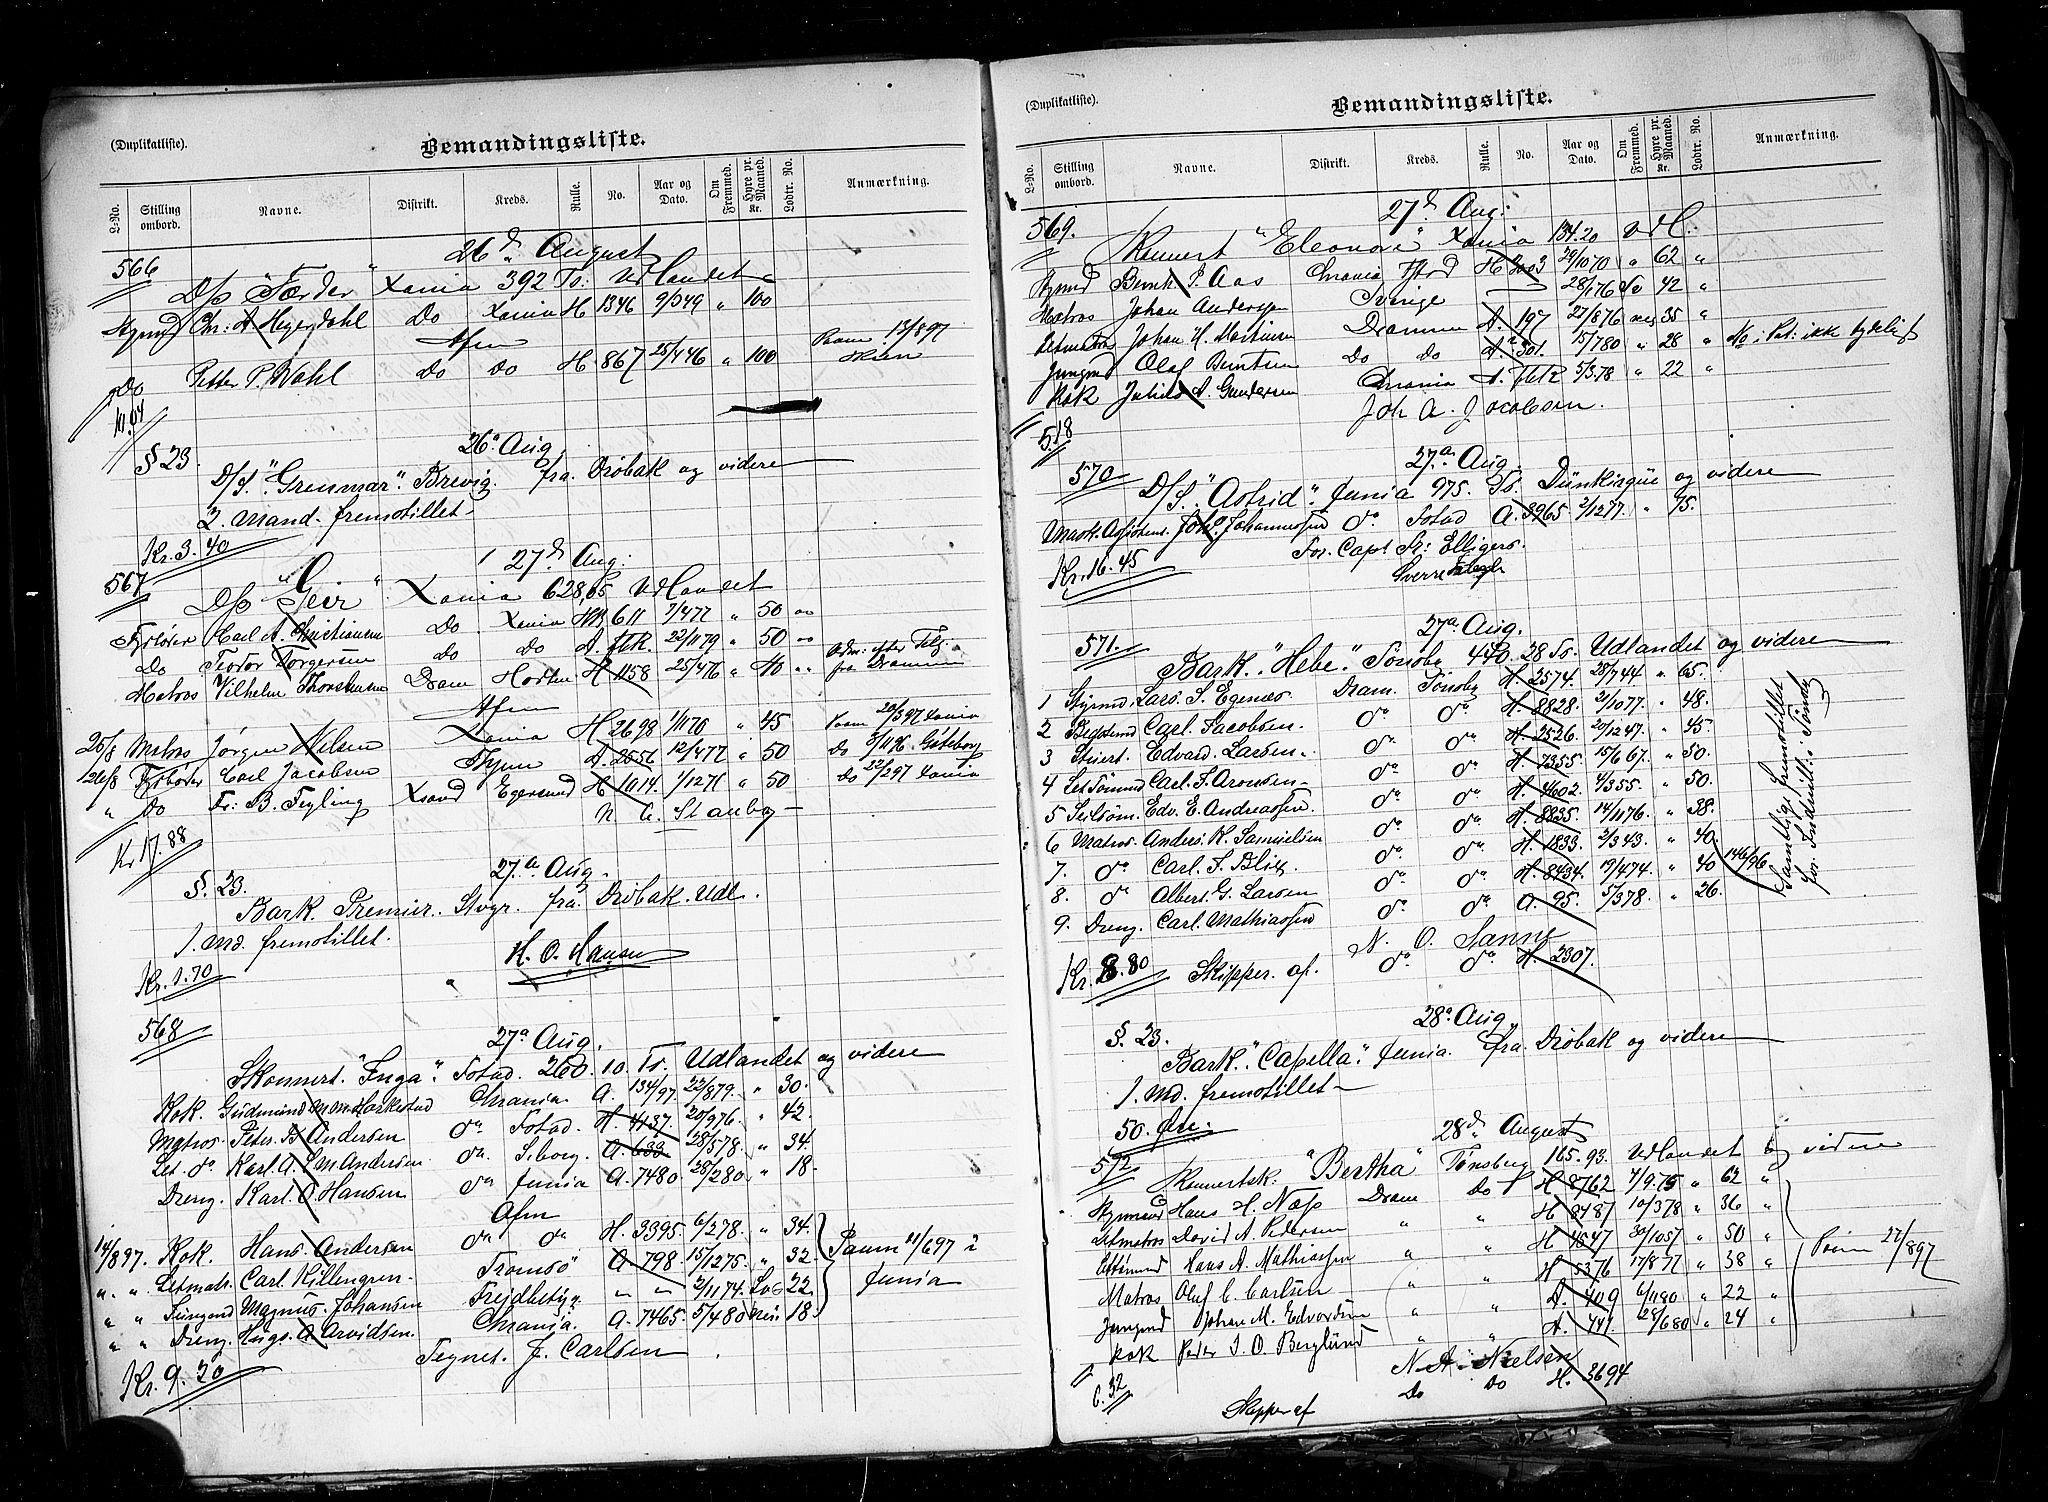 (Duplikatliste).
Bemandingsliste.
L-No. Stilling ombord. Navne. Distrikt. Kreds. Rulle. No. Aar og Dato. Om Fremmed. Hyre pr. Maaned. Kr. Lodtr. No. Anmærkning.
26d August
566
D/s "Færder" Xania 392 Ts: Udlandet
Styrmd Chr: A Heyerdahl Do Xania H 1346 9/349 " 100
Afm
Do Petter P. Wahl Do Do H. 867 25/446 " 100
26a Aug.
§ 23.
D/S. "Grenmar". Brevig. fra Drøbak og videre
2. Mand. fremstillet
Kr. 3. 40
27d Aug:
567
D/s "Geir" Xania 628,65 Udlandet
Fyrbøter Carl A. Christiansen Do Xania 611 7/477 " 50
Do Teodor Torgersen Do Do A. 22/1179 " 50
Matros Vilhelm Thorstensen Dram Horten H 1158 25/476 " 40
Afm
25/8 Matros Jørgen Nilsen Xania H 2698 1/1170 " 45 20/397 Xania
26/8 Fyrbøter Carl Jacobsen A. 2556 12/477 " 50 Do Gøteborg
" Do Fr: B. Feyling Xsand Egersund H 1114 1/1271 " 50 Do 22/297 Xania
Kr 17. 88
27.a Aug.
§. 23.
Bark. Premier. Stvgr. fra Drøbak. Udl.
1. Md. fremstillet.
H. O. Hansen
Kr. 1. 70
568
27a Aug.
Skonnert. "Inga". Fstad. 260. 10. Ts. Udlandet og videre
Kok. Gudmund Chrania. A. 134/97. 22/879. " 30.
Matros. Peter. B Andersen do Fstad. H. 4137. 20/976. " 42.
Let. do Karl. A. Andersen do. Sborg. A. 633 28/578. " 34
Dreng. Karl. O. Hansen do Junia A. 7480 28/280 " 18.
Afm
14/897. Kok. Hans. Andersen do do H. 3395. 6/278. " 34.
" " Letmatr. Carl. Killengren. Tromsø A. 798. 15/1275. " 32.
" " Jungmd Magnus. Johansen " " 2/1174. 22
" " Dreng. Hugo. A Arvidsen. Chrania. A. 7465. 5/480 18.
11/697 i Junia
Tegnet. J. Carlsen
Kr. 9. 20
(Duplikatliste).
Bemandingsliste.
L-No. Stilling ombord. Navne. Distrikt. Kreds. Rulle. No. Aar og Dato. Om Fremmed. Hyre pr. Maaned. Kr. Lodtr. No. Anmærkning.
27d Aug:
569.
Skonnert "Eleonore" Xania 134.20 Udl.
Styrmd P. Aas Chrania H 3003 29/1070 " 62 "
Matros Johan Andersen Sverige 28/176 Sv 42 "
Letmatr Johan H. Martinsen Drammen A. 197 27/876 nei 35 "
Jungmd Olaf Berntsen Do Do A. 301. 15/780 " 28 "
Kok Julius A. Gundersen Chrania A. 5/378 " 22 "
Joh A. Jacobsen.
5.18
27.a Aug
570
D/S. "Astrid". Junia 975. Ts. Dünkirque og videre
Mask. Assistent Johannessen do. Fstad A. 3965. 2/1277. " 75.
For. Capt Fr: Elligers.
Sverre
Kr. 16. 45
27a Aug.
571.
Bark. "Hebe." Tønsbg 440. 28 Ts. Udlandet og videre
1 Styrmd. Lars. S. Egenæs. Dram. Tønsbg H. 2574. 28/744 " 65.
2 Carl. Jacobsen. do do. H. 8828. 2/1077. " 48.
3 Stuert. Edvard. Larsen. do do. H. 2526. 20/1247. " 45.
4 Carl. F. Aronsen do do. H. 7355. 15/667. " 50.
5 Edv. E. Andreassen. do do. H. 4602. 4/355. " 50.
6 Matros. Anders. K. Samuelsen do. do. H. 8835. 14/1176. " 38.
7. do Carl. F. Blix. do. do. H. 1833. 2/343. " 40.
8. do Albert. G. Larsen do. do. H. 8434. 19/474. " 40 146/96
9. Dreng. Carl. Mathiassen do. do. A. 95. 5/378. " 26.
Samtlige fremstillet
for
N. O. Sanne
Kr. 8. 80 Skipper. af. do. do. H. 2307.
28a Aug.
§. 23.
Bark. "Capella". Junia. fra. Drøbak og videre
1. Md. fremstillet
50. Øre.
28d August
572
Skonnertsk. "Bertha" Tønsberg 165. 93. Udlandet og videre
Styrmand Hans H. Næss Dram Do H 8762 7/9.75 " 62 "
Letmatros David A. Pedersen " " H 8487 10/378 " 36 "
Hans A. Mathiassen " " H 4547 30/1057 " 50 "
Matros Oluf C. Carlsen " " H 5376 17/871 " 38 "
Jungmd Johan M. Edvardsen " " A. 409 6/1180 " 22 "
Kok Peder J. O. Berglund " " A. 741. 28/680 " 24 "
27/897
N. A. Nielsen
6.32
Skipper af Do Do H. 3694